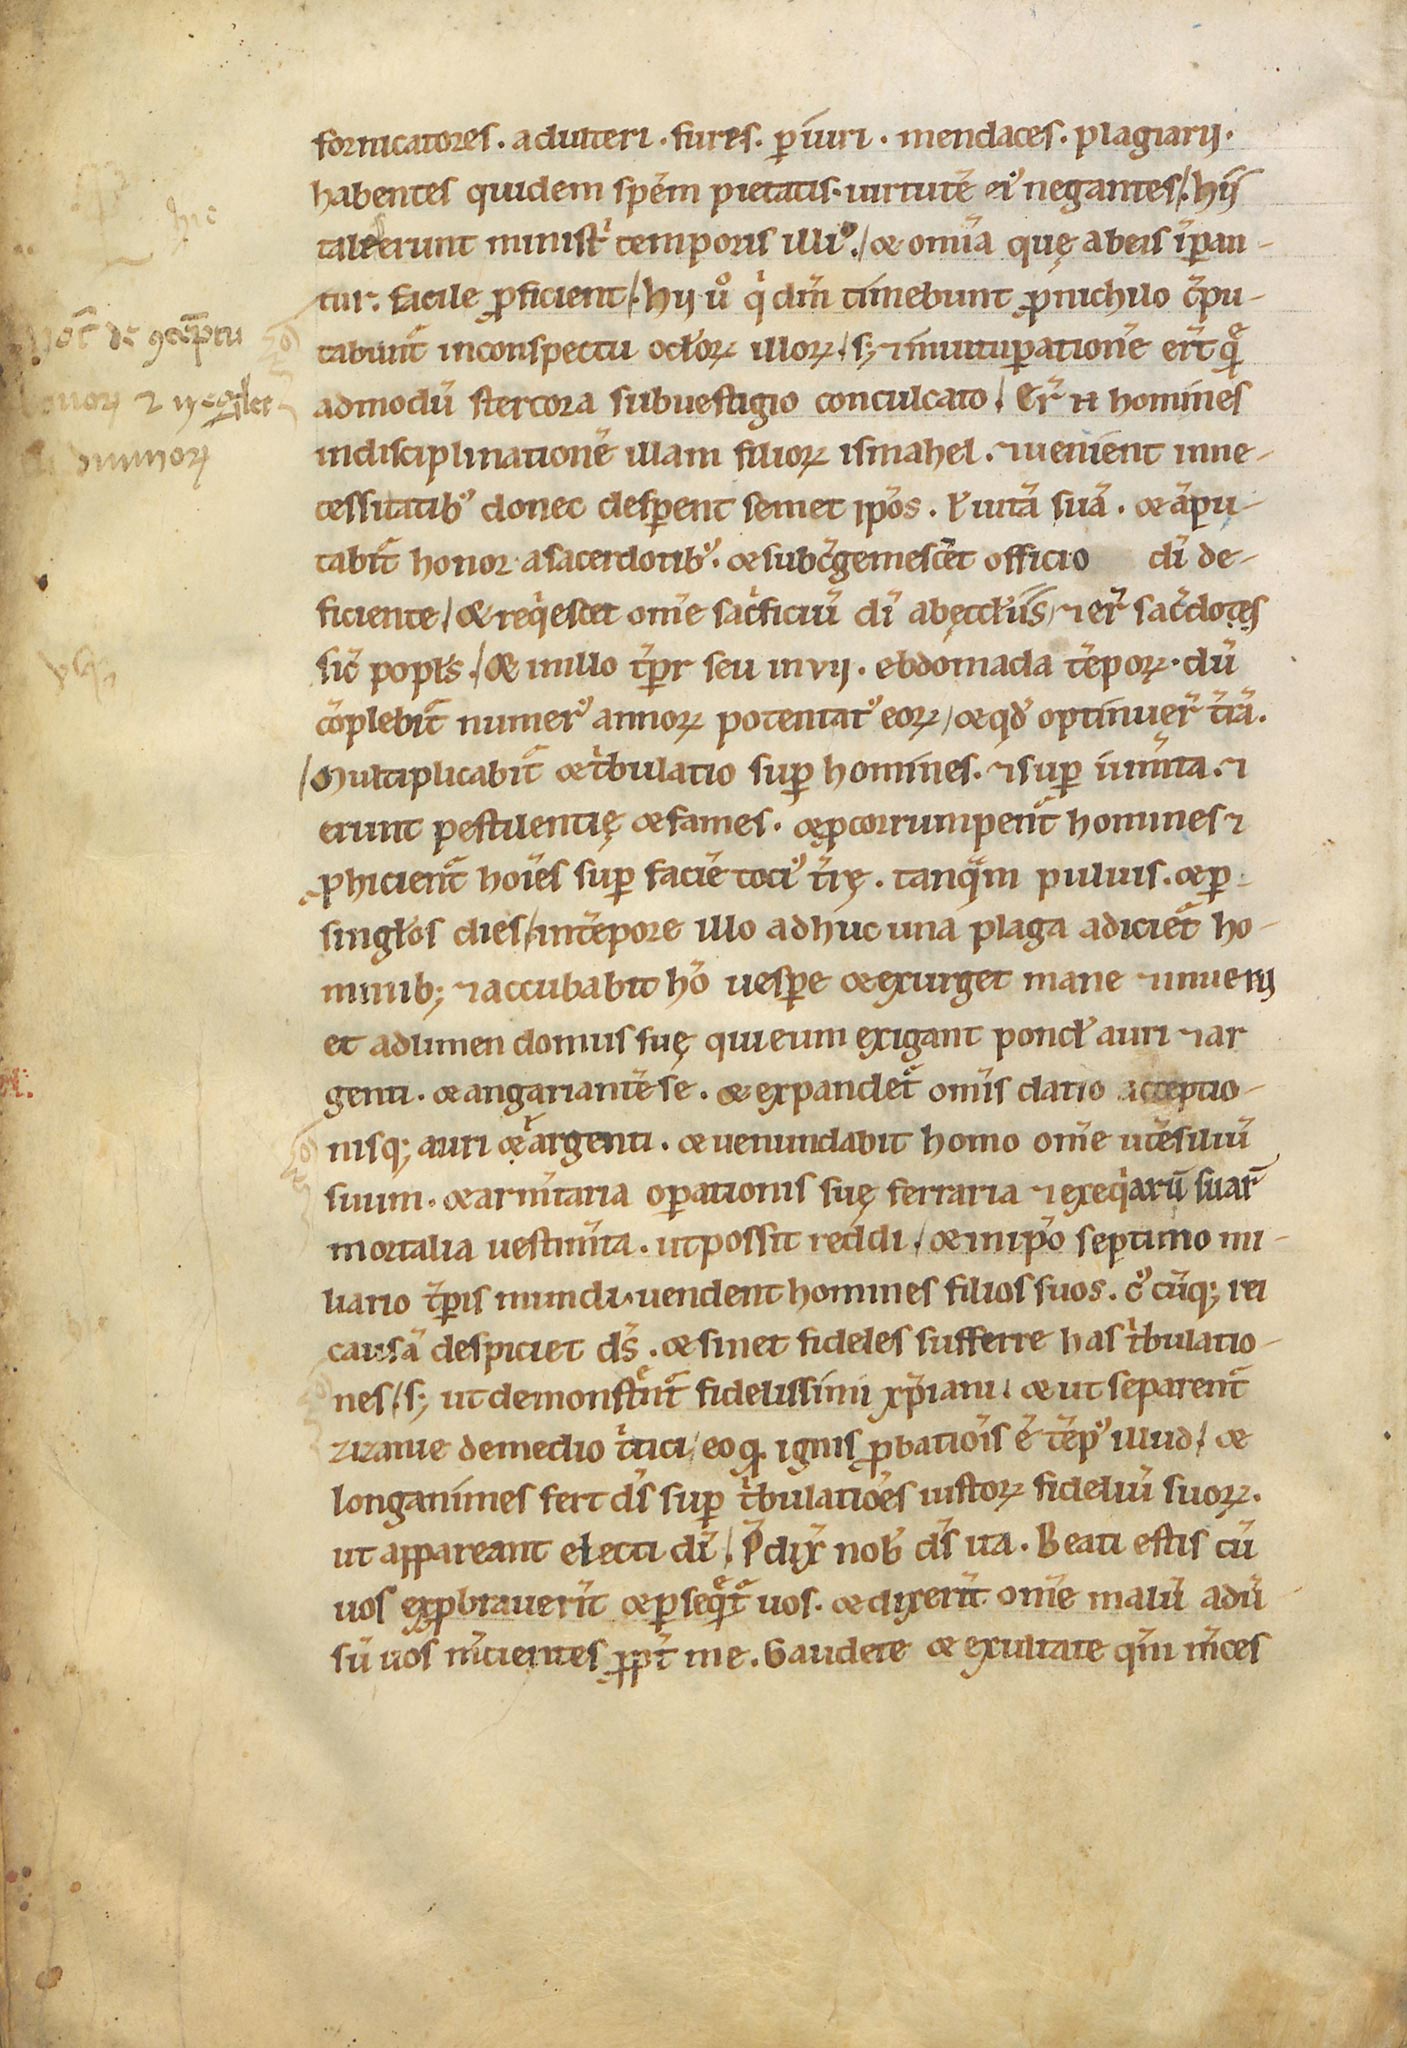 hic
fornicatores. adulteri. fures. ꝑiuri. mendaces. plagiarij.
habentes quidem spēm pietatis. uirtutē eiꝰ negantes/. hij
tales erunt ministri temporis illiꝰ./ & omīa quę abeis īꝑan-
tur. facile ꝓficient/. hij ū̊ qͥ dm̄ timebunt ꝓnichilo c̄pu-
tabunt᷑ inconspectu oclōꝝ illoꝝ/. s; ⁊ inuituꝑationē er̄t qͣ
admodū stercora subuestigio conculcato/. Er̄t ⁊ homines
indisciplinationē illam filioꝝ ismahel. ⁊uenient inne-
cessitatibꝰ donec desꝑent semet ip̄os. ł uitā suā. & āpu-
tabit᷑ honor asacerdotibꝰ. & subc̄gemescet officio di̅ de-
ficiente/ & reqͥescet om̄e sacͥficiū di̅ abęccl̄iis/ ⁊ er̄t sac̄dotes
sic̄ popl̄s./ & inillo tp̄r seu in vij. ebdomada tēpoꝝ. dū
c̄plebit᷑ numerꝰ annoꝝ potentatꝰ eoꝝ/ & qd̄ optinuer̄ tr̄ā.
/Multiplicabit᷑ & tͥbulatio suꝑ homines. ⁊ suꝑ ium̄ta. ⁊
erunt pestilentię & fames. & ꝑcorrumpent᷑ homines ⁊
ꝓhicient᷑ hoīes suꝑ faciē tociꝰ tr̄ę. tanqͣm puluis. & ꝑ
singłos dies/. intēpore illo adhuc una plaga adiciet᷑ ho-
minib; ⁊ accubabit hō uesꝑe & exurget mane ⁊ inueni
et adlimen domus suę quieum exigant pond̄ auri ⁊ ar
genti. & angariantē se. & expandet᷑ om̄is datio acceptio-
nisq; auri & argenti. & uenundabit homo om̄e utēsiliū
suum. & arm̄taria oꝑationis suę ferraria ⁊ exeqͥarū suar̄
mortalia uestim̄ta. utpossit reddi./ & inip̄o septimo mi-
liario tp̄ris mundi. uendent homines filios suos. cꝰ cūq; rei
causā despiciet ds̄. & sinet fideles sufferre has tͥbulatio-
nes/. s; ut demonstͣnt᷑ fidelissimi xp̄iani. & ut separent᷑
zizanie demedio tͥtici/ eo qͥ ignis ꝓbatiōis ē tēpꝰ illud/. &
longanimes fert ds̄ suꝑ tͥbulatiōes iustoꝝ fideliū suoꝝ.
ut appareant electi di̅/. P̄dix̄ nob̄ ds̄ ita. Beati estis cū
uos exꝓbrauer̄it & ꝑseqͣt᷑ uos. & dixer̄it om̄e malū adū
sū uos m̄cientes ꝓpt̄ me. Gaudete & exultate qm̄ m̄ces